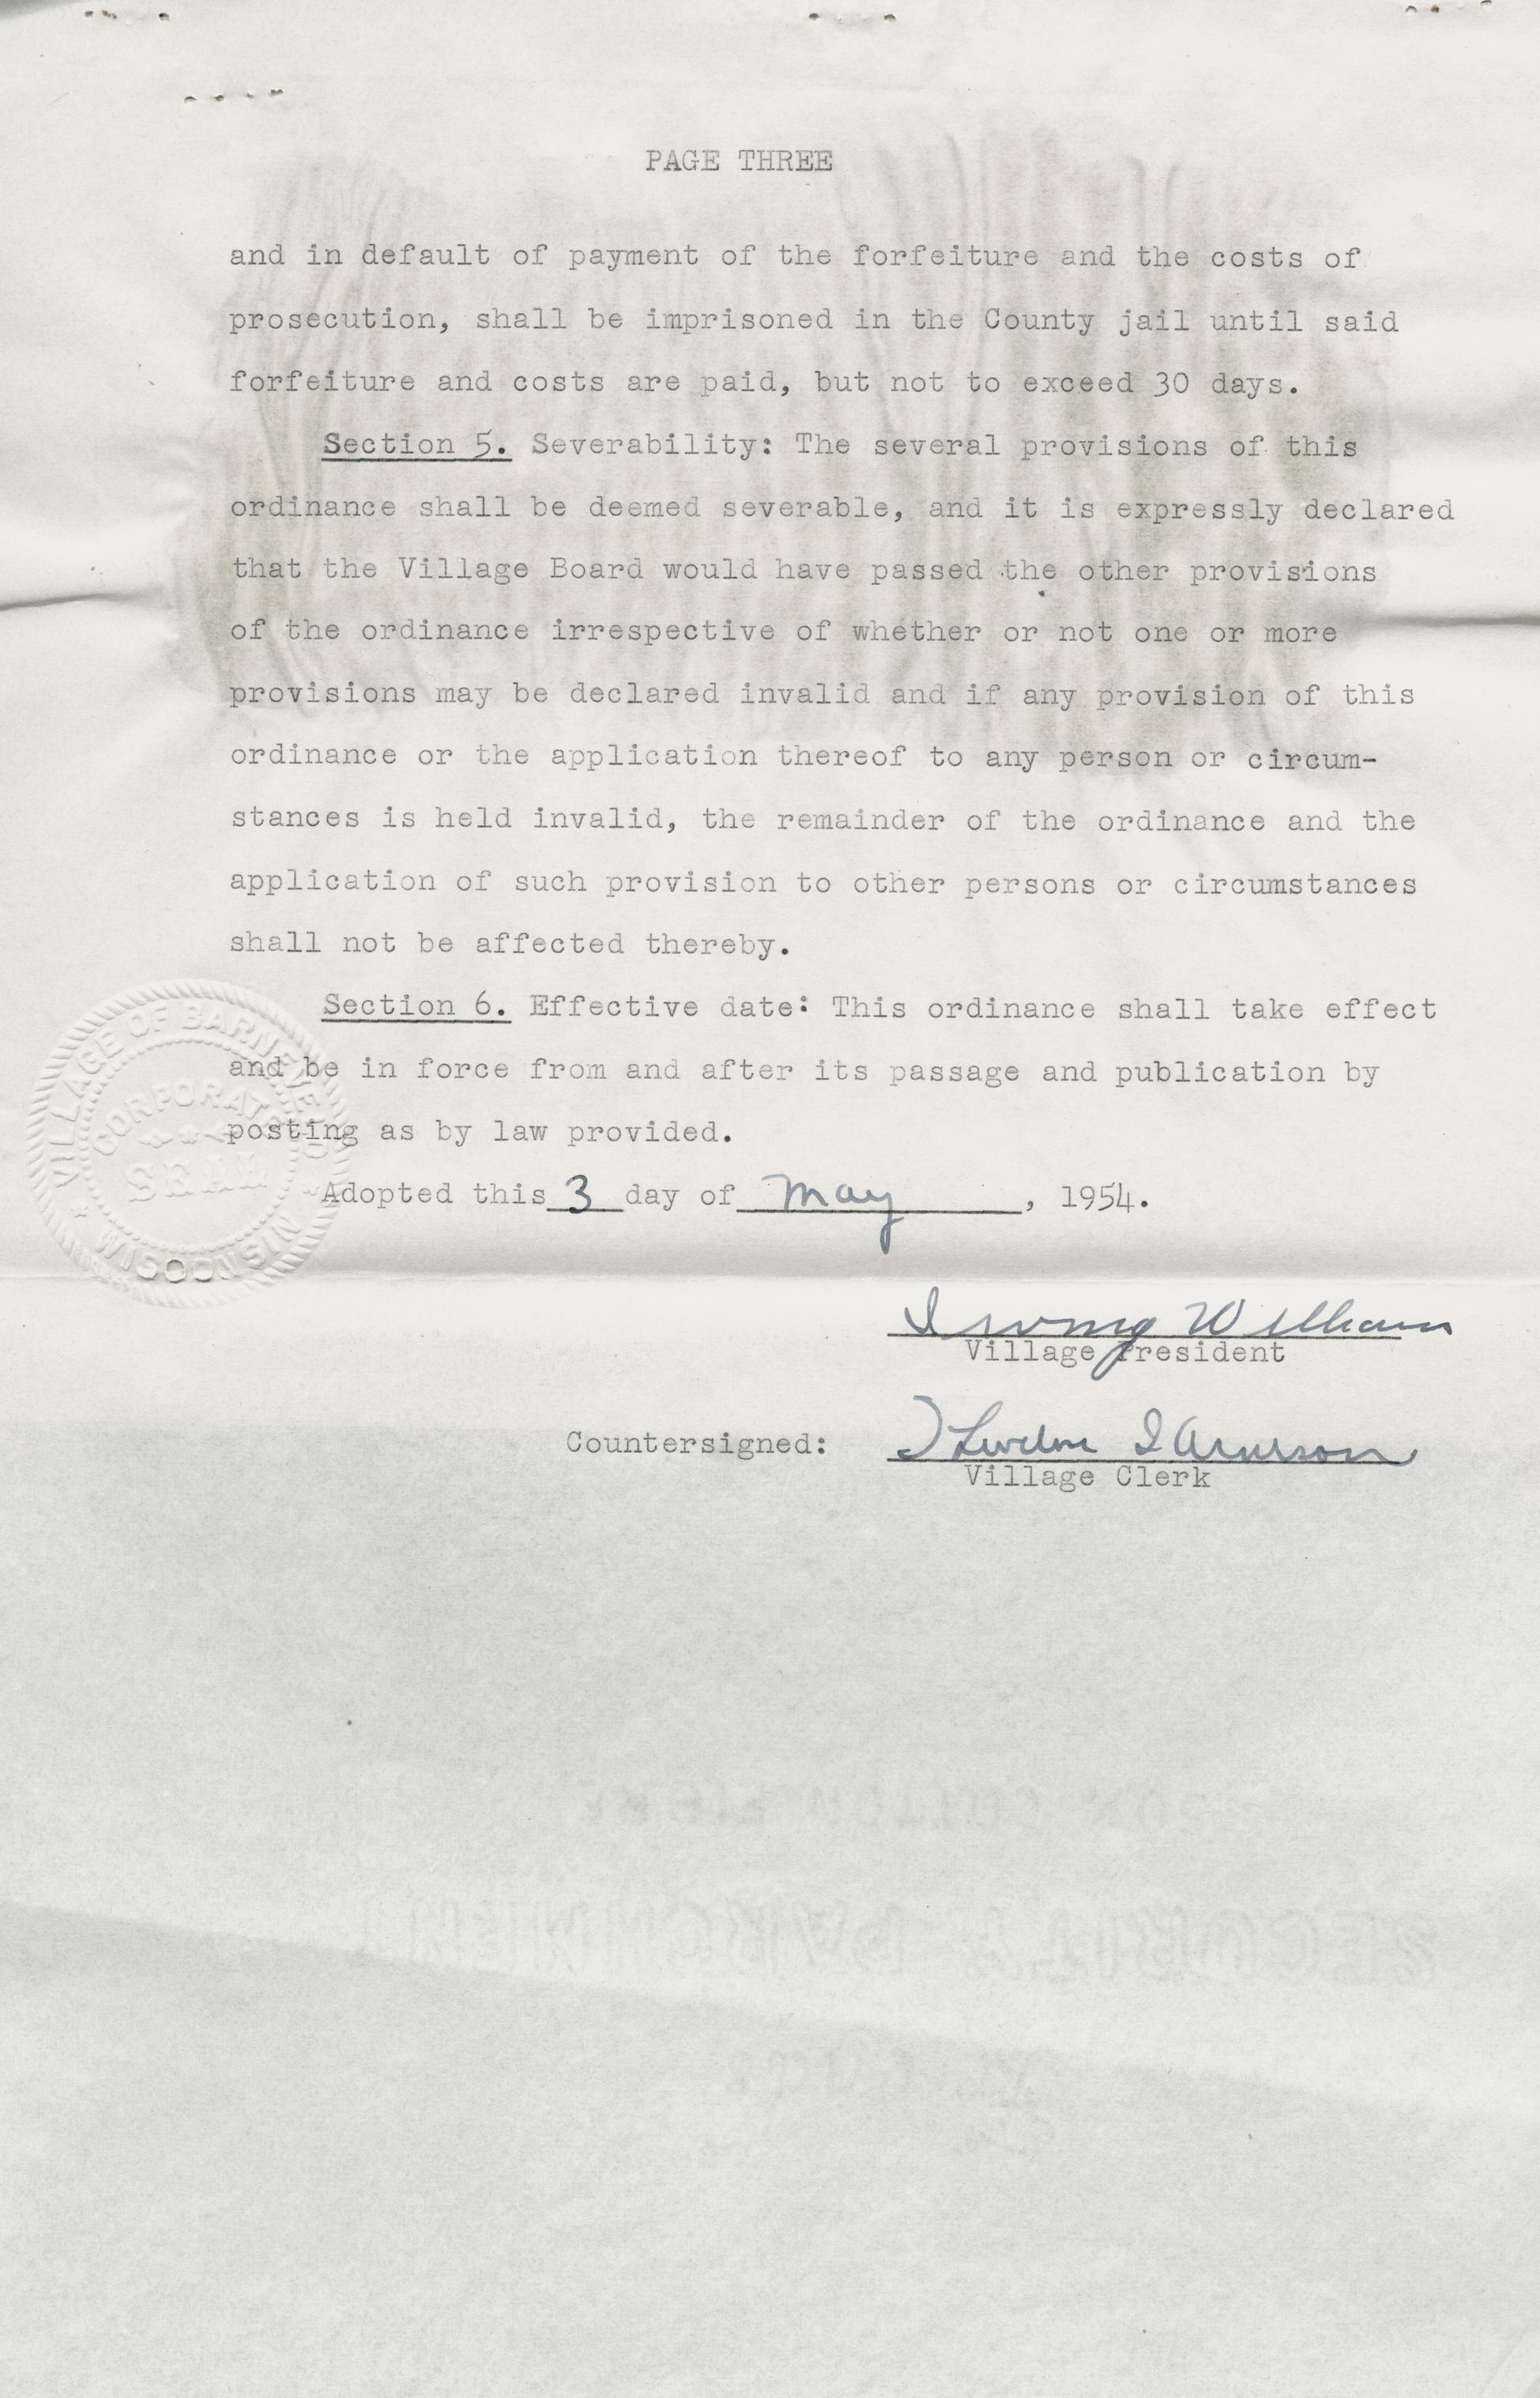 PAGE THREE
and in default of payment of the forfeiture and the costs of
prosecution, shall be imprisoned in the County jail until said
forfeiture and costs are paid, but not to exceed 30 days.
Section 5. Severability: The several provisions of this
ordinance shall be deemed severable, and it is expressly declared
that the Village Board would have passed the other provisions
of the ordinance irrespective of whether or not one or more
provisions may be declared invalid and if any provision of this
ordinance or the application thereof to any person or circum-
stances is held invalid, the remainder of the ordinance and the
application of such provision to other persons or circumstances
shall not be affected thereby.
Section 6. Effective date: This ordinance shall take effect
and be in force from and after its passage and publication by
posting as by law provided.
Adopted this 3 day of May, 1954.
VILLAGE OF BARNEVELD
CORPORATE
SEAL
WISCONSIN
Irving Williams
Village President
Countersigned:
Village Clerk